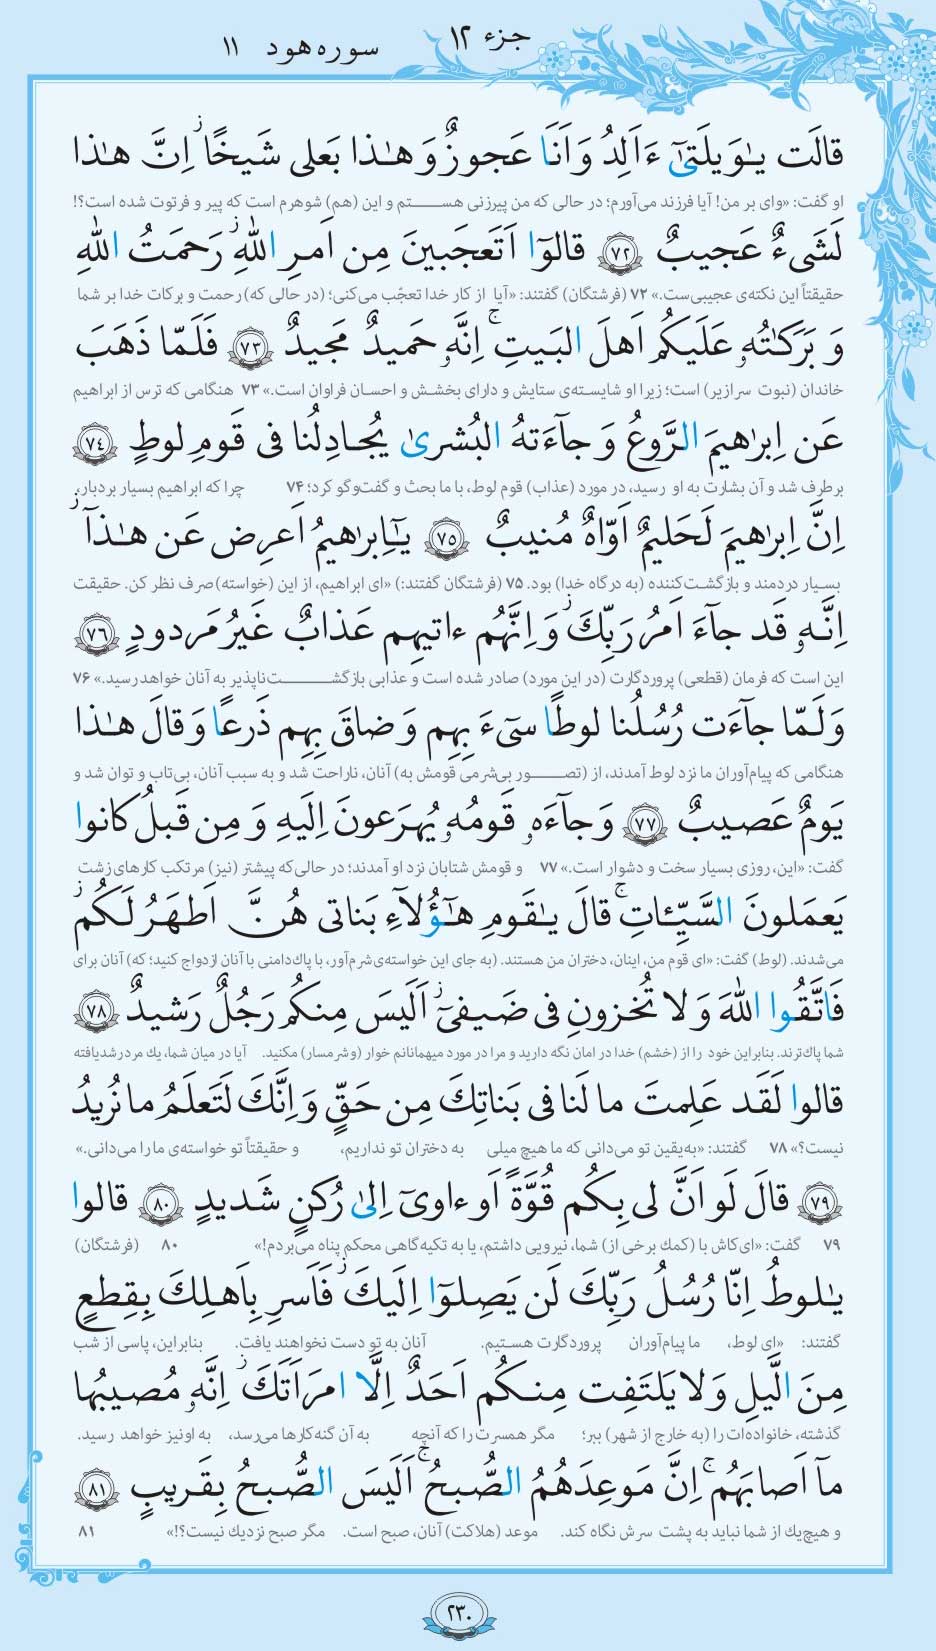 جزء ۱۲ سوره هود ۱۱
قالَت يـٰوَيلَتىٰٓ ءَاَلِدُ وَ اَنَا عَجوزٌ وَ هـٰذا بَعلى شَيخًا ۖ اِنَّ هـٰذا
او گفت: «وای بر من! آیا فرزند می‌آورم؛ در حالی که من پیرزنی هستم و این (هم) شوهرم است که پیر و فرتوت شده است؟!
لَشَىءٌ عَجيبٌ ﴿۷۲﴾ قالوٓا اَتَعجَبينَ مِن اَمرِ اللّٰهِ ۖ رَحمَتُ اللّٰهِ
حقیقتاً این نکته‌ی عجیبی‌ست.» ۷۲ (فرشتگان) گفتند: «آیا از کار خدا تعجّب می‌کنی؛ (در حالی که) رحمت و برکات خدا بر شما
وَ بَرَكـٰتُهُۥ عَلَيكُم اَهلَ البَيتِ ۚ اِنَّهُۥ حَميدٌ مَجيدٌ ﴿۷۳﴾ فَلَمّا ذَهَبَ
خاندان (نبوت سرازیر) است؛ زیرا او شایسته‌ی ستایش و دارای بخشش و احسان فراوان است.» ۷۳ هنگامی که ترس از ابراهیم
عَن اِبرٰهيمَ الرَّوعُ وَ جآءَتهُ البُشرىٰ يُجـٰدِلُنا فى قَومِ لوطٍ ﴿۷۴﴾
برطرف شد و آن بشارت به او رسید، در مورد (عذاب) قوم لوط، با ما بحث و گفت‌وگو کرد؛ ۷۴ چرا که ابراهیم بسیار بردبار،
اِنَّ اِبرٰهيمَ لَحَليمٌ اَوّٰهٌ مُنيبٌ ﴿۷۵﴾ يـٰٓاِبرٰهيمُ اَعرِض عَن هـٰذآ ۖ
بسیار دردمند و بازگشت‌کننده (به درگاه خدا) بود. ۷۵ (فرشتگان گفتند:) «ای ابراهیم، از این (خواسته) صرف نظر کن. حقیقت
اِنَّهُۥ قَد جآءَ اَمرُ رَبِّكَ ۖ وَ اِنَّهُم ءاتيهِم عَذابٌ غَيرُ مَردودٍ ﴿۷۶﴾
این است که فرمان (قطعی) پروردگارت (در این مورد) صادر شده است و عذابی بازگشت‌ناپذیر به آنان خواهد رسید.» ۷۶
وَ لَمّا جآءَت رُسُلُنا لوطًا سىٓءَ بِهِم وَ ضاقَ بِهِم ذَرعًا وَ قالَ هـٰذا
هنگامی که پیام‌آوران ما نزد لوط آمدند، از (تصور بی‌شرمی قومش به) آنان، ناراحت شد و به سبب آنان، بی‌تاب و توان شد و
يَومٌ عَصيبٌ ﴿۷۷﴾ وَ جآءَهُۥ قَومُهُۥ يُهرَعونَ اِلَيهِ وَ مِن قَبلُ كانوا
گفت: «این، روزی بسیار سخت و دشوار است.» ۷۷ و قومش شتابان نزد او آمدند؛ در حالی‌که پیشتر (نیز) مرتکب کارهای زشت
يَعمَلونَ السَّيِّـٔاتِ ۚ قالَ يـٰقَومِ هـٰٓؤُلآءِ بَناتى هُنَّ اَطهَرُ لَكُم ۖ
می‌شدند. (لوط) گفت: «ای قوم من، اینان، دختران من هستند. (به جای این خواسته‌ی شرم‌آور، با پاك‌دامنی با آنان ازدواج کنید؛ که) آنان برای
فَاتَّقُوا اللّٰهَ وَ لا تُخزونِ فى ضَيفىٓ ۖ اَلَيسَ مِنكُم رَجُلٌ رَشيدٌ ﴿۷۸﴾
شما پاك‌ترند. بنابراین خود را از (خشم) خدا در امان نگه دارید و مرا در مورد میهمانانم خوار (و شرمسار) مکنید. آیا در میان شما، یك مرد رشدیافته
قالوا لَقَد عَلِمتَ ما لَنا فى بَناتِكَ مِن حَقٍّ وَ اِنَّكَ لَتَعلَمُ ما نُريدُ
نیست؟» ۷۸ گفتند: «به‌یقین تو می‌دانی که ما هیچ میلی به دختران تو نداریم، و حقیقتاً تو خواسته‌ی ما را می‌دانی.»
﴿۷۹﴾ قالَ لَو اَنَّ لى بِكُم قُوَّةً اَو ءاوىٓ اِلىٰ رُكنٍ شَديدٍ ﴿۸۰﴾ قالوا
۷۹ گفت: «ای‌کاش با (کمك برخی از) شما، نیرویی داشتم، یا به تکیه‌گاهی محکم پناه می‌بردم!» ۸۰ (فرشتگان)
يـٰلوطُ اِنّا رُسُلُ رَبِّكَ لَن يَصِلوٓا اِلَيكَ ۖ فَاَسرِ بِاَهلِكَ بِقِطعٍ
گفتند: «ای لوط، ما پیام‌آوران پروردگارت هستیم. آنان به تو دست نخواهند یافت. بنابراین، پاسی از شب
مِنَ الَّيلِ وَ لا يَلتَفِت مِنكُم اَحَدٌ اِلَّا امرَاَتَكَ ۖ اِنَّهُۥ مُصيبُها
گذشته، خانواده‌ات را (به خارج از شهر) ببر؛ مگر همسرت را که آنچه به آن گنه‌کارها می‌رسد، به او نیز خواهد رسید.
مآ اَصابَهُم ۚ اِنَّ مَوعِدَهُمُ الصُّبحُ ۚ اَلَيسَ الصُّبحُ بِقَريبٍ ﴿۸۱﴾
و هیچ‌یك از شما نباید به پشت سرش نگاه کند. موعد (هلاکت) آنان، صبح است. مگر صبح نزدیك نیست؟!» ۸۱
۲۳۰